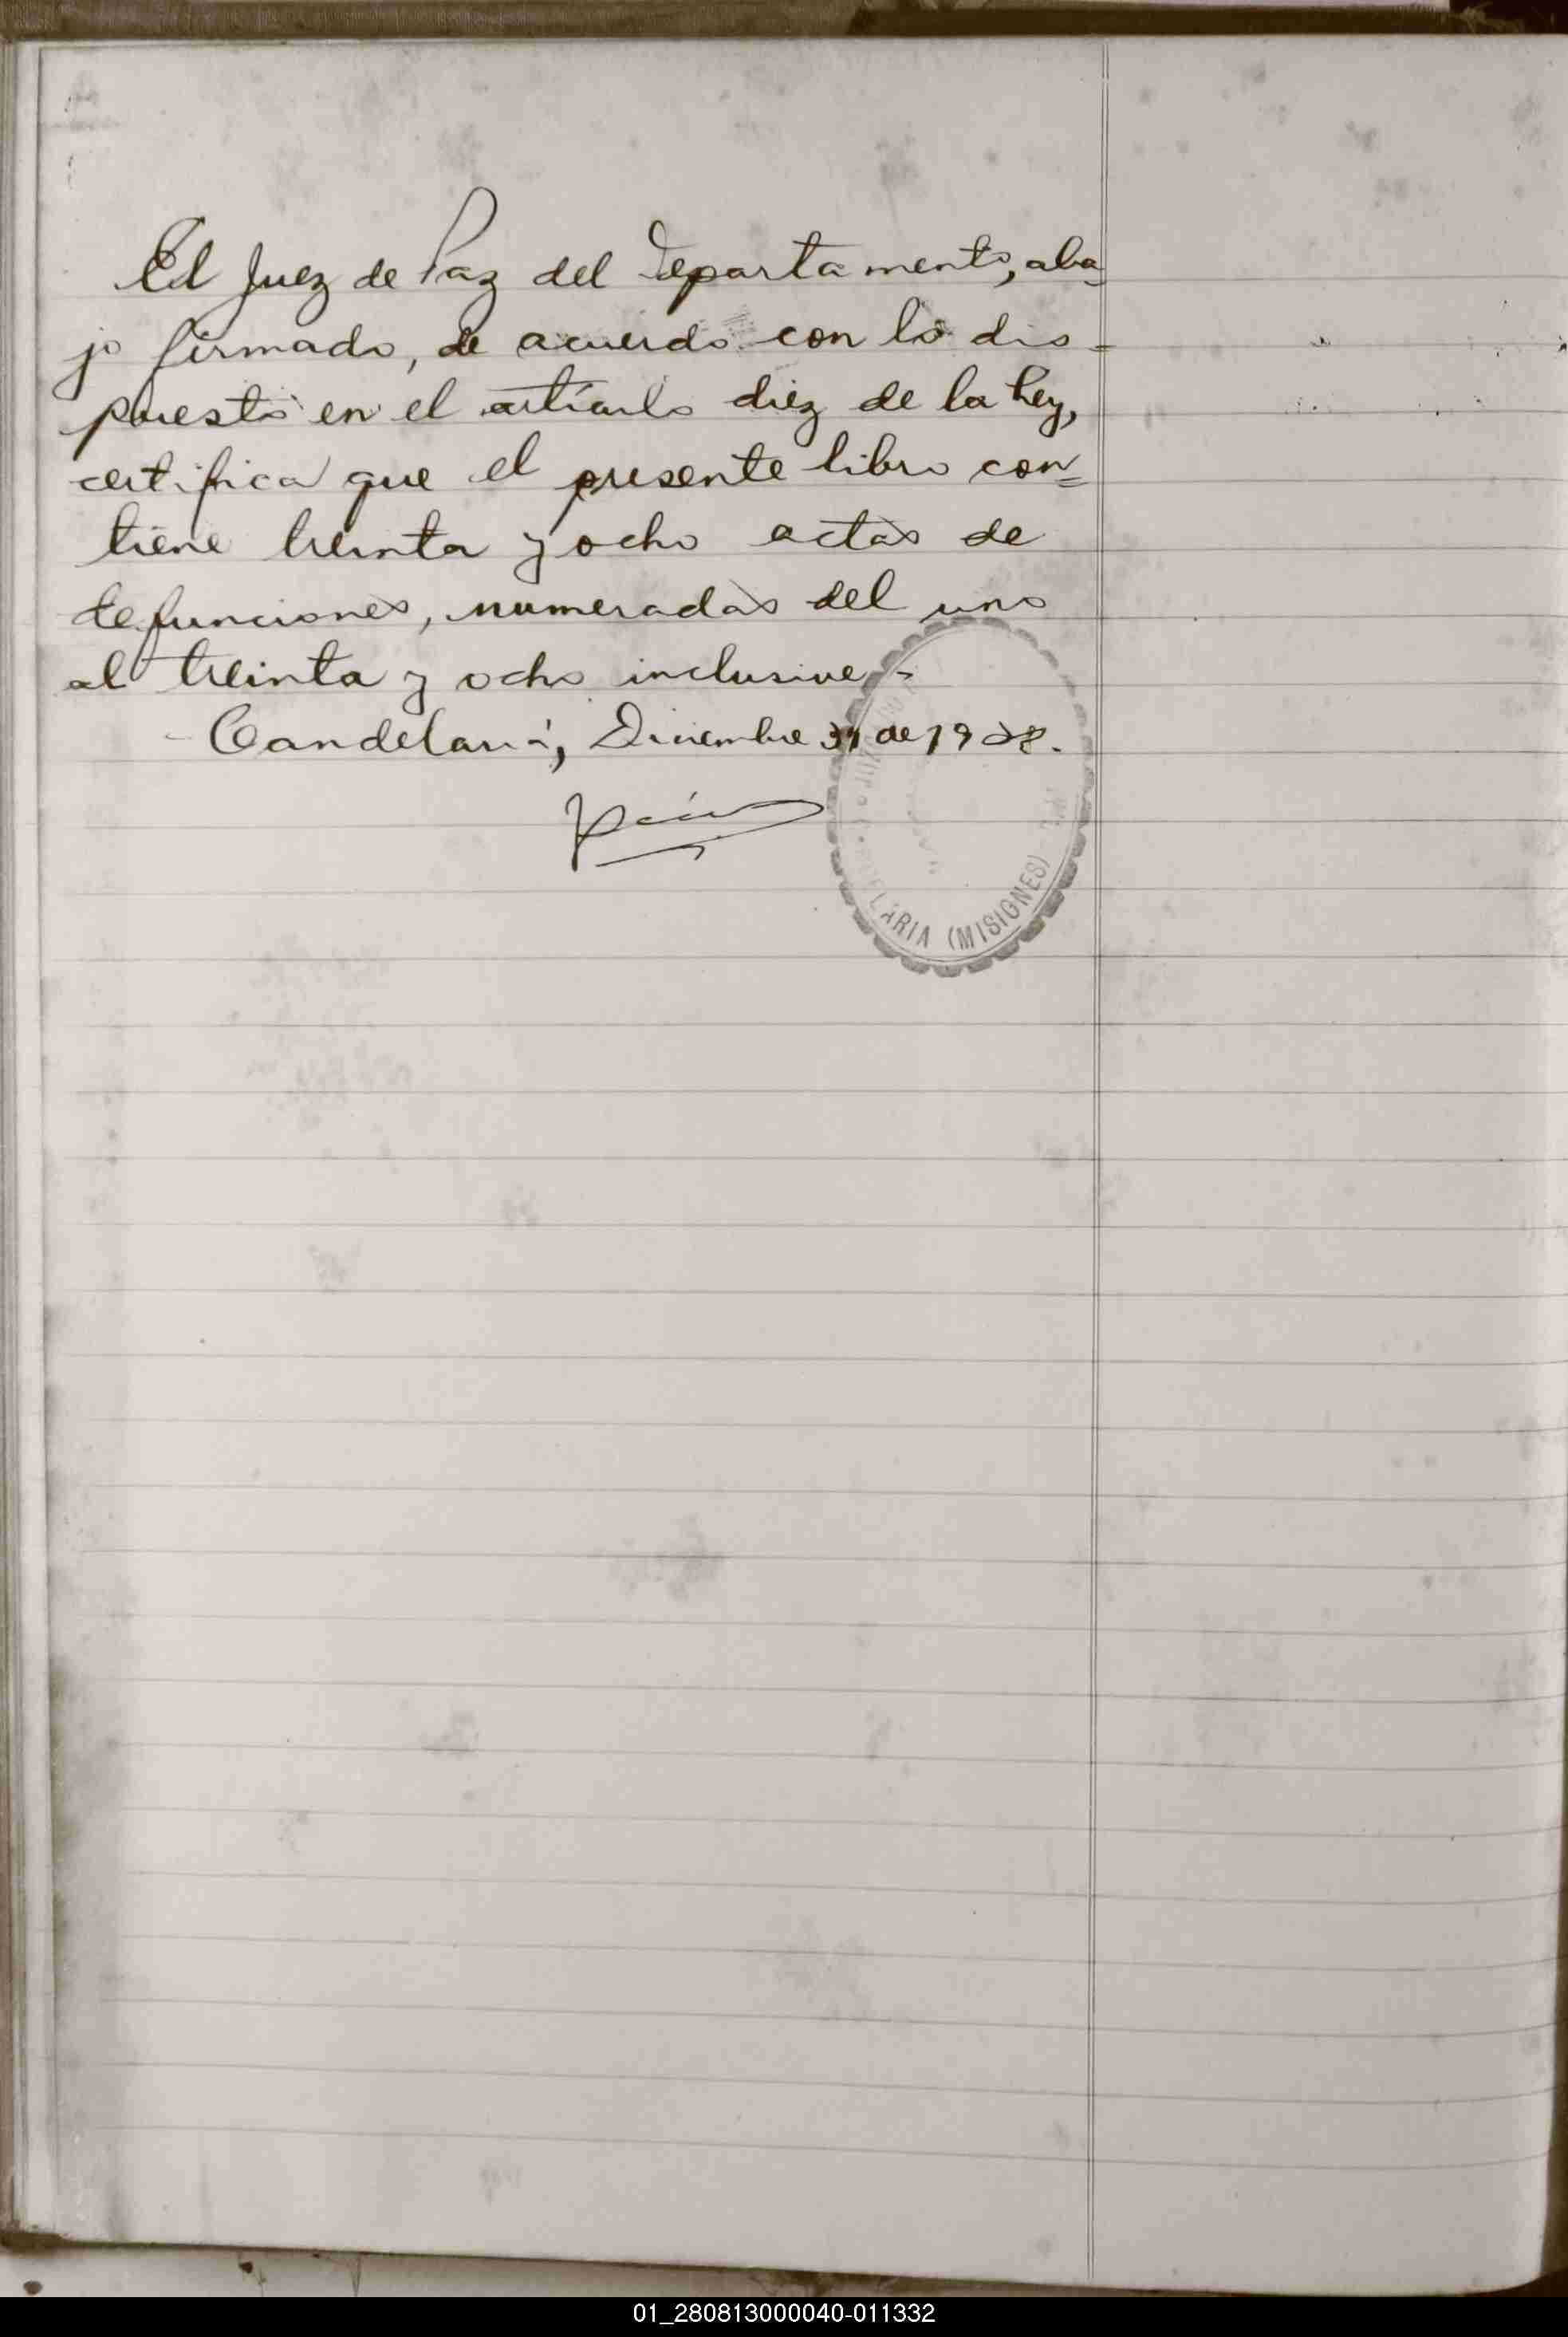 El Juez de Paz del Departamento, aba_
jo firmado, de acuerdo con lo dis_
puesto en el artículo diez de la Ley,
certifica que el presente libro con=
tiene treinta y ocho actas de
defunciones, numeradas del uno
al treinta y ocho inclusive.-
Candelaria, Diciembre 31 de 1928.
ELARIA (MISIONES)
01_280813000040-011332